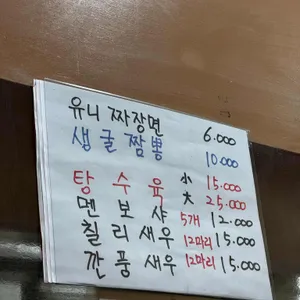 유니 짜장면 6.000
생굴 짬뽕 10.000
탕수육 小 15.000
大 25.000
멘보샤 5개 12.000
칠리새우 12마리 15.000
깐풍새우 12마리 15.000